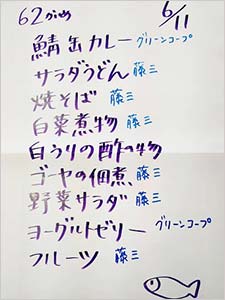 62かいめ 6/11
鯖缶カレー グリーンコープ
サラダうどん 藤三
焼そば 藤三
白菜煮物 藤三
白うりの酢の物
ゴーヤの佃煮 藤三
野菜サラダ 藤三
ヨーグルトゼリー グリーンコープ
フルーツ 藤三